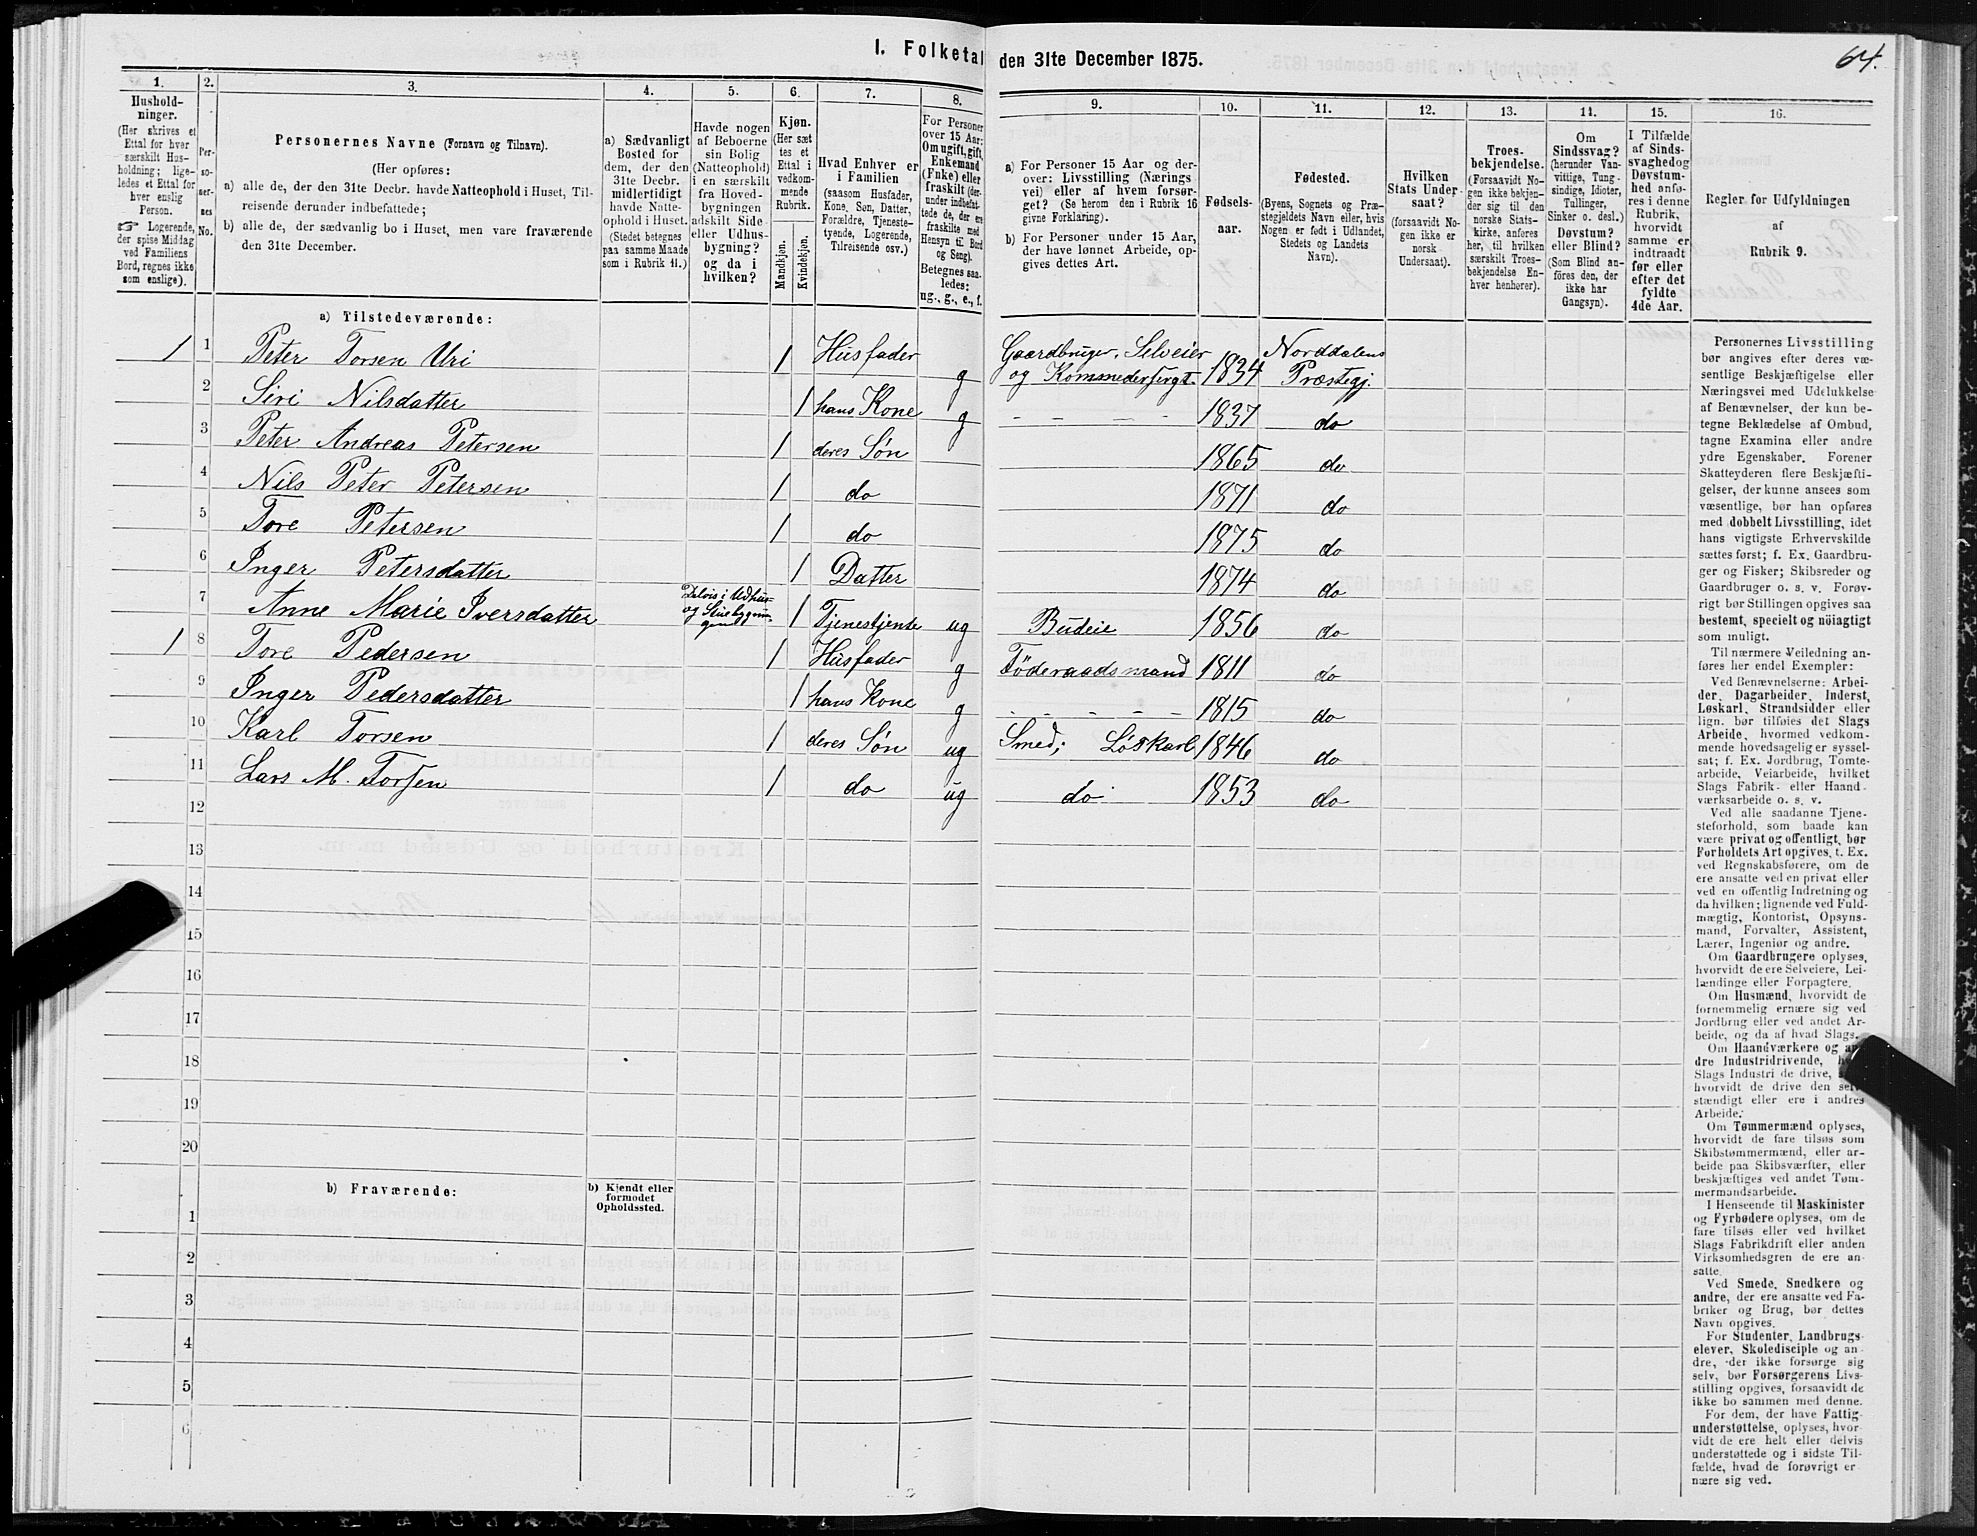 I. Folketal den 31te December 1875.
64.
1. 2. 3. 4. 5. 6. 7. 8. 9. 10. 11. 12. 13. 14. 15. 16.
Hushold-
ninger.
(Her skrives et
Ettal for hver
særskilt Hus-
holdning; lige-
ledes et Ettal for
hver enslig
Person.
☞ Logerende,
der spise Middag
ved Familiens
Bord, regnes ikke
som enslige).
Per-
so-
ner-
nes
No.
Personernes Navne (Fornavn og Tilnavn).
(Her opføres:
a) alle de, der den 31te Decbr. havde Natteophold i Huset, Til-
reisende derunder indbefattede;
b) alle de, der sædvanlig bo i Huset, men vare fraværende
den 31te December.
a) Sædvanligt
Bosted for
dem, der den
31te Decbr.
midlertidigt
havde Natte-
ophold i Huset.
(Stedet betegnes
paa samme Maade
som i Rubrik 11.)
Havde nogen
af Beboerne
sin Bolig
(Natteophold)
i en særskilt
fra Hoved-
bygningen
adskilt Side-
eller Udhus-
bygning?
og da i
hvilken?
Kjøn.
(Her sæt-
tes et
Ettal i
vedkom-
mende
Rubrik.
Mandkjøn.
Kvindekjøn.
Hvad Enhver er
i Familien
(saasom Husfader,
Kone, Søn, Datter,
Forældre, Tjeneste-
tyende, Logerende,
Tilreisende osv.)
For Personer
over 15 Aar:
Om ugift, gift,
Enkemand
(Enke) eller
fraskilt (der-
under indbefat-
tede de, der ere
fraskilte med
Hensyn til Bord
og Seng).
Betegnes saa-
ledes:
ug., g., e., f.
a) For Personer 15 Aar og der-
over: Livsstilling (Nærings
vei) eller af hvem forsør-
get? (Se herom den i Rubrik 16
givne Forklaring).
b) For Personer under 15 Aar,
der have lønnet Arbeide, op-
gives dettes Art.
Fødsels-
aar.
Fødested.
(Byens, Sognets og Præ-
stegjeldets Navn eller, hvis
Nogen er født i Udlandet,
Stedets og Landets
Navn).
Hvilken
Stats Under-
saat?
(forsaavidt No-
gen ikke er
norsk
Undersaat).
Troes-
bekjendelse.
(Forsaavidt No-
gen ikke bekjen-
der sig til den
norske Stats-
kirke, anføres
her, til hvilken
særskilt Troes-
bekjendelse En-
hver henhører).
Om
Sindssvag?
(herunder Van-
vittige, Tung-
sindige, Idioter,
Tullinger,
Sinker o. desl.)
Døvstum?
eller Blind?
(Som Blind an-
føres den, der
ikke har
Gangsyn).
I Tilfælde
af Sinds-
svaghed og
Døvstum-
hed anfø-
res i denne
Rubrik,
hvorvidt
samme er
indtraadt
før eller
efter det
fyldte
4de Aar.
Regler for Udfyldningen
af
Rubrik 9.
a) Tilstedeværende:
1 1 Peter Torsen Uri 1 Husfader g Gaardbruger, Selveier og Kommedersergt. 1834 Norddalens Præstegj.
2 Siri Nilsdatter 1 hans Kone g - - - - - 1837 do
3 Peter Andreas Petersen 1 deres Søn 1865 do
4 Nils Peter Petersen 1 do 1871 do
5 Tore Petersen 1 do 1875 do
6 Inger Petersdatter 1 Datter 1874 do
7 Anne Marie Iversdatter 1 Tjenestjente ug Budeie 1856 do
1 8 Tore Pedersen 1 Husfader g Föderaadsmand 1811 do
9 Inger Pedersdatter 1 hans Kone g - - - - - 1815 do
10 Karl Torsen 1 deres Søn ug Smed; Löskarl 1846 do
11 Lars M. Torsen 1 do ug do 1853 do
12
13
14
15
16
17
18
19
20
b) Fraværende:
b) Kjendt eller
formodet
Opholdssted.
1
2
3
4
5
6
Personernes Livsstilling
bør angives efter deres væ-
sentlige Beskjæftigelse eller
Næringsvei med Udelukkelse
af Benævnelser, der kun be-
tegne Beklædelse af Ombud,
tagne Examina eller andre
ydre Egenskaber. Forener
Skatteyderen flere Beskjæfti-
gelser, der kunne ansees som
væsentlige, bør han opføres
med dobbelt Livsstilling, idet
hans vigtigste Erhvervskilde
sættes først; f. Ex. Gaardbru-
ger og Fisker; Skibsreder og
Gaardbruger o. s. v. Forøv-
rigt bør Stillingen opgives saa
bestemt, specielt og nöiagtigt
som muligt.
Til nærmere Veiledning an-
føres her endel Exempler:
Ved Benævnelserne: Arbei-
der, Dagarbeider, Inderst,
Løskarl, Strandsidder eller
lign. bør tilføies det Slags
Arbeide, hvormed vedkom-
mende hovedsagelig er syssel-
sat; f. Ex. Jordbrug, Tomte-
arbeide, Veiarbeide, hvilket
Slags Fabrik- eller Haand-
værksarbeide o. s. v.
Ved alle saadanne Tjene-
steforhold, som baade kan
være privat og offentligt, bør
Forholdets Art opgives, t. Ex.
ved Regnskabsførere, om de
ere ansatte ved en privat eller
ved en offentlig Indretning og
da hvilken; lignende ved Fuld-
mægtig, Kontorist, Opsyns-
mand, Forvalter, Assistent,
Lærer, Ingeniør og andre.
Om Gaardbrugere oplyses,
hvorvidt de ere Selveiere, Lei-
lændinge eller Forpagtere.
Om Husmænd, hvorvidt de
fornemmelig ernære sig ved
Jordbrug eller ved andet Ar-
beide, og da af hvad Slags.
Om Haandværkere og an-
dre Industridrivende,
Slags Industri de drive,
hvorvidt de drive den selv-
stændigt eller ere i andres
Arbeide.
Om Tømmermænd oplyses,
hvorvidt de fare tilsøs som
Skibstømmermænd, eller ar-
beide paa Skibsværfter, eller
beskjæftiges ved andet Tøm-
mermandsarbeide.
I Henseende til Maskinister
og Fyrbødere oplyses, om de
fare tilsøs eller ved hvilket
Slags Fabrikdrift eller anden
Virksomhedsgren de ere an-
satte.
Ved Smede, Snedkere og
andre, der ere ansatte ved Fa-
briker og Brug, bør dettes
Navn opgives.
For Studenter, Landbrugs-
elever, Skoledisciple og an-
dre, der ikke forsørge sig
selv, bør Forsørgerens Livs-
stilling opgives, forsaavidt de
ikke bo sammen med denne.
For dem, der have Fattig-
understøttelse, oplyses, hvor-
vidt de ere helt eller delvis
understøttede og i sidste Til-
fælde, hvad de forøvrigt er-
nære sig ved.